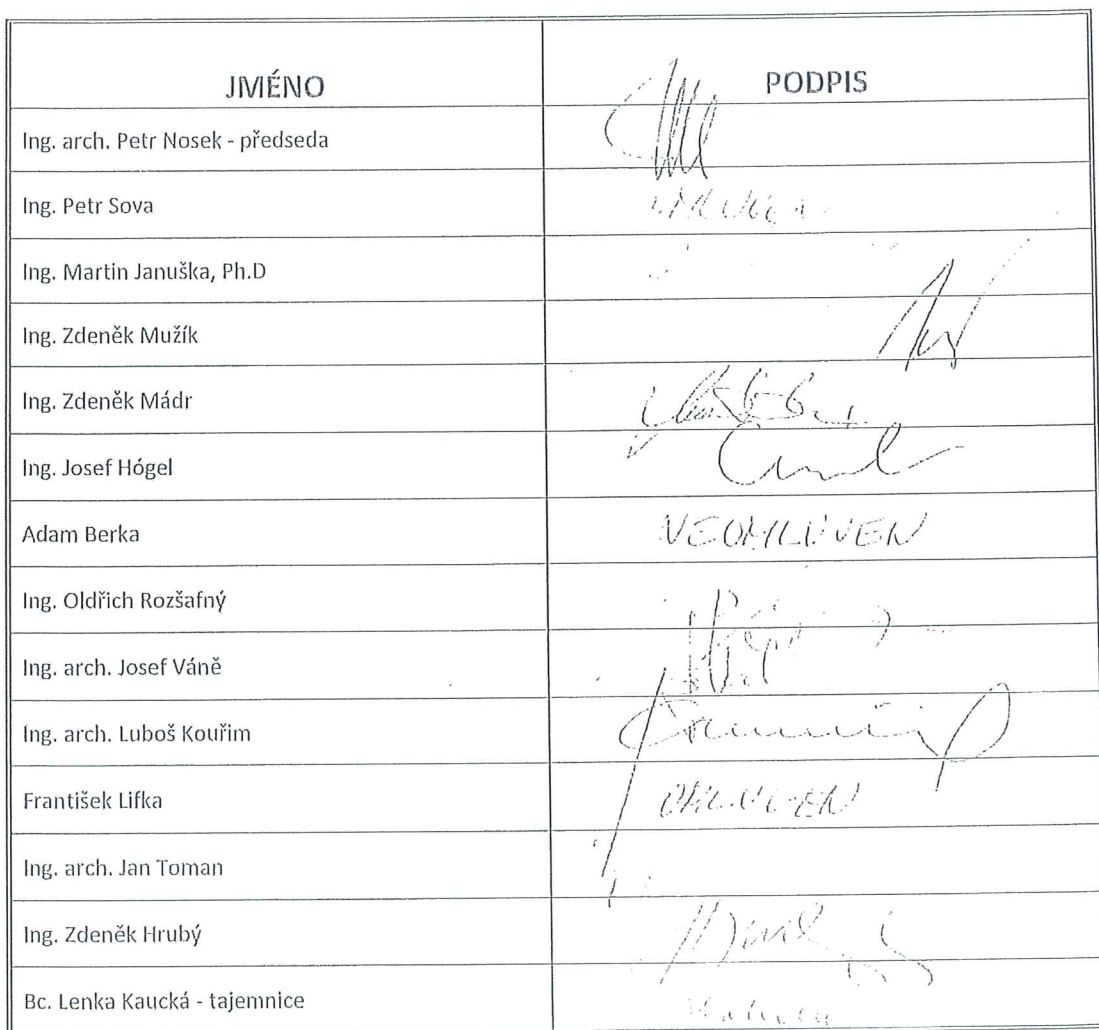 JMÉNO PODPIS
Ing. arch. Petr Nosek - předseda
Ing. Petr Sova
Ing. Martin Januška, Ph.D
Ing. Zdeněk Mužík
Ing. Zdeněk Mádr
Ing. Josef Hógel
Adam Berka NEOMLUVEN
Ing. Oldřich Rozšafný
Ing. arch. Josef Váně
Ing. arch. Luboš Kouřim
František Lifka OMLUVEN
Ing. arch. Jan Toman
Ing. Zdeněk Hrubý
Bc. Lenka Kaucká - tajemnice